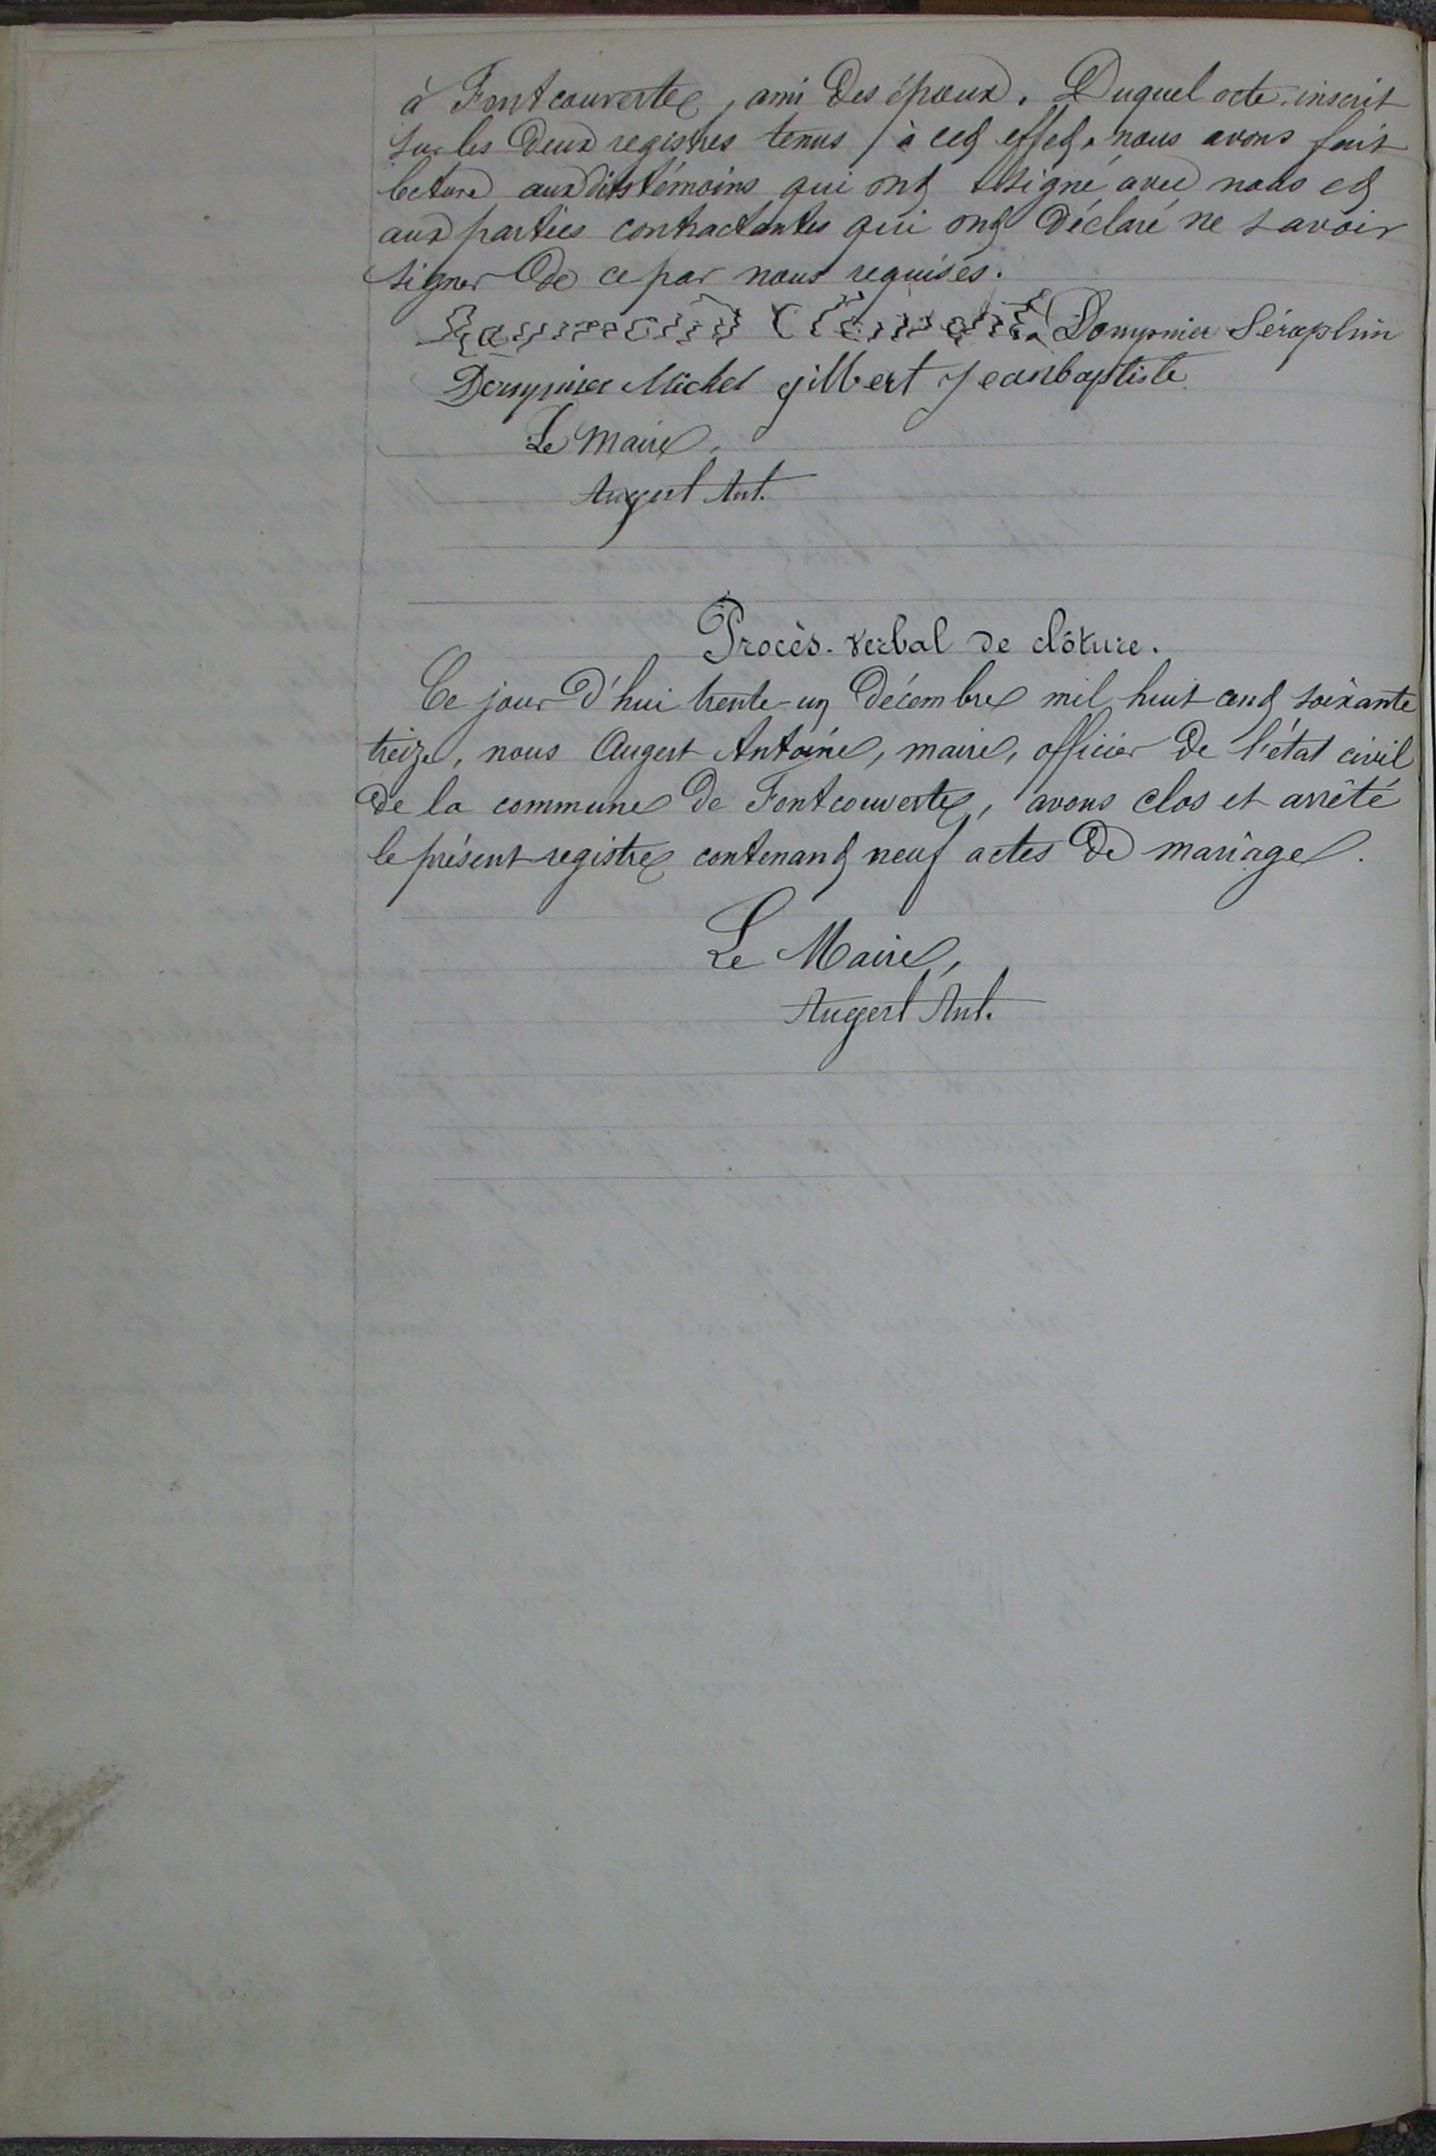 à Fontcouverte, ami des époux. Duquel acte, inscrit
sur les deux registres tenus à cet effet, nous avons fait
lecture aux dits témoins qui ont signé avec nous et
aux parties contractantes qui ont déclaré ne savoir
signer de ce par nous requises.
Dompnier Séraphin
Dompnier Michel gilbert jeanbaptiste
Le Maire,
Augert Ant.
Procès-verbal de clôture.
Ce jour d'hui trente-un décembre mil huit cent soixante
treize, nous Augert Antoine, maire, officier de l'état civil
de la commune de Fontcouverte, avons clos et arrêté
le présent registre contenant neuf actes de mariage.
Le Maire,
Augert Ant.